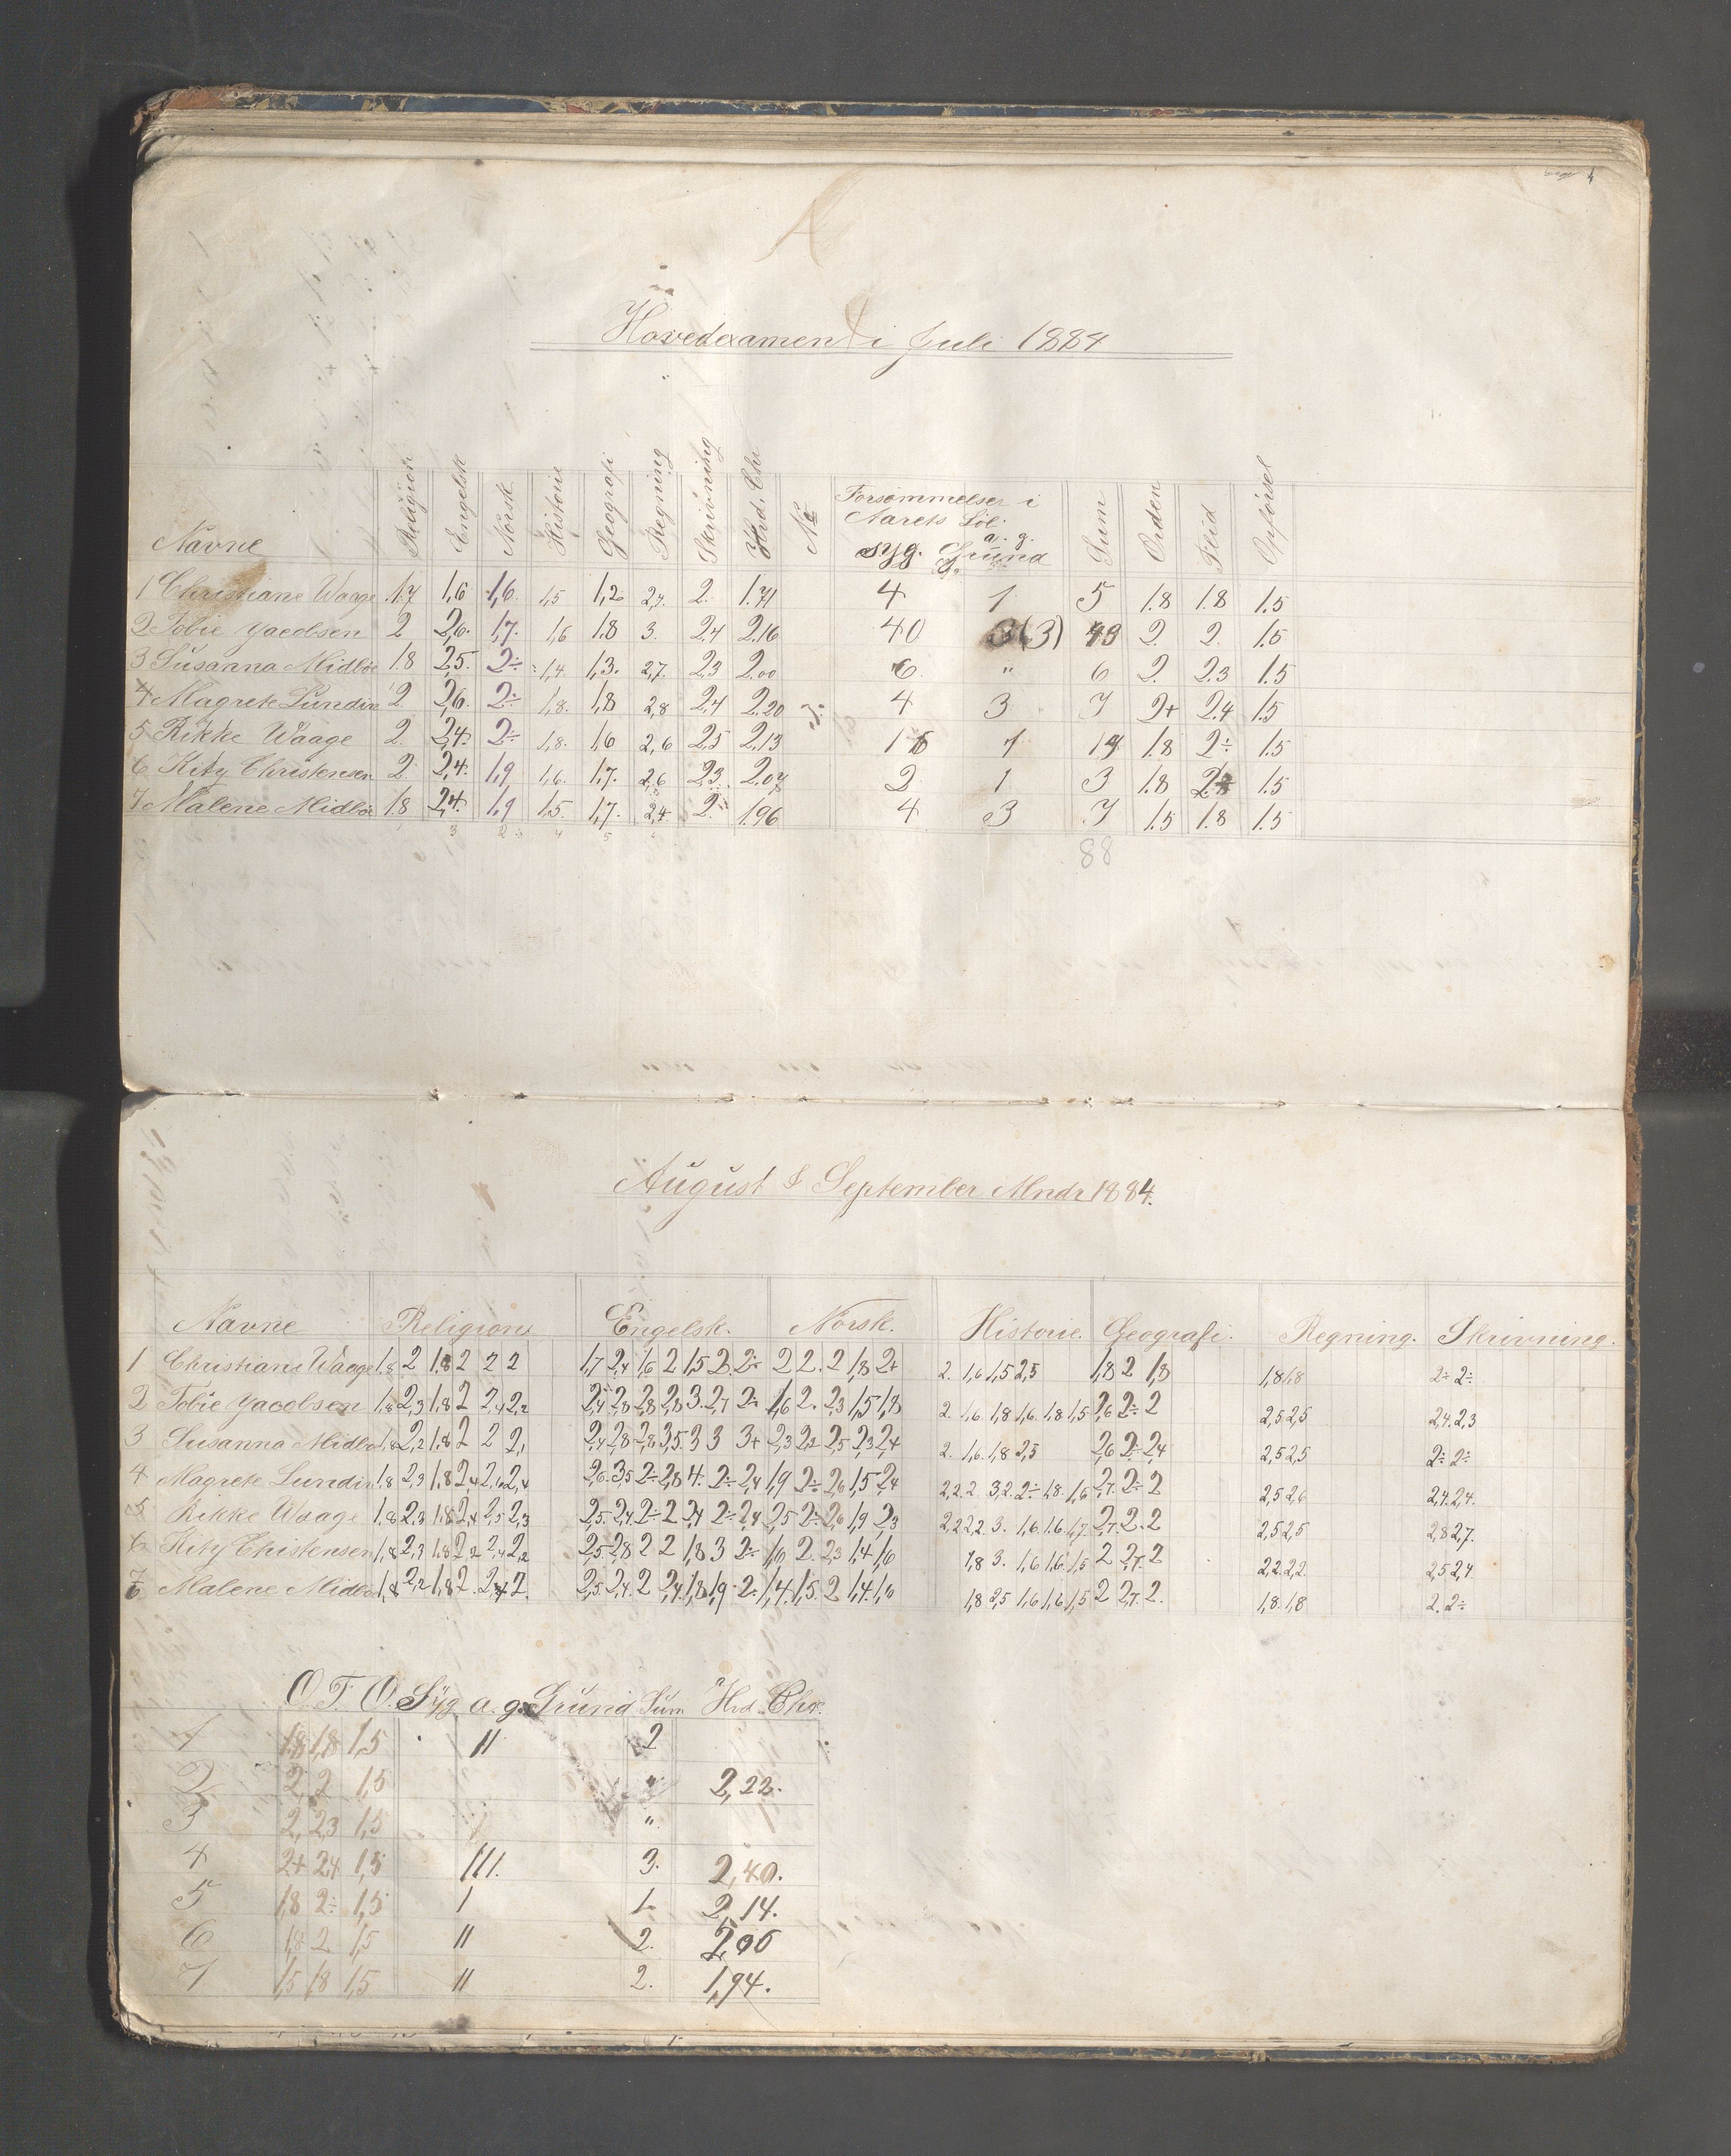 Hovedexamen i Juli 1884
Navne Religion Engelsk Norsk Historie Geografi Regning Skrivning Hvd. Chr No Forsømmelser i Aarets Löb. syg. a. g. Grund Sum Orden Flid Opförsel
1 Christiane Waage 1.7 1,6 1,6. 1,5 1,2 2,7. 2. 1.71 4 1 5 1.8 1.8 1.5
2 Tobie Yacobsen 2 2,6. 1,7. 1,6 1.8 3. 2.4 2.16 40 3(3) 43 2. 2. 1.5
3 Susanna Midbö 1.8 2,5. 2÷ 1,4. 1,3. 2,7. 2,3 2.00 6. " 6 2. 2.3 1.5
4 Magrete Lundin 2. 2,6. 2÷ 1,8. 1,8 2,8 2,4 2.20 4 3 7 2+ 2.4 1.5
5 Rikke Waage 2. 2,4. 2÷ 1,8. 1,6 2,6 2,5 2.13 1 1.8 2÷ 1.5
6 Kity Christensen 2. 2,4. 1,9 1,6. 1,7. 2,6 2,3. 2.07 2 1 3 1.8 1.5
7 Malene Midbö 1.8 2,4. 1,9 1,5. 1,7. 2,4 2. 1.96 4 3 7 1.5 1.8 1.5
88
August & September Mndr 1884.
Navne Religion Engelsk. Norsk. Historie. Geografi. Regning. Skrivning.
1 Christiane Waage 1,8 2 1,8 2 2 2 1,7 2,4 1,6 2 1,5 2. 2÷ 2 2. 2 1,8 2+ 2. 1,6 1,5 2,5 1,8 2 1,8 1,8 1,8 2÷ 2÷
2 Tobie Yacobsen 1,8 2,3 1,8 2 2,4 2,2 2,4 2,8 2,8 2,8 3. 2,7 2÷ 1,6 2. 2,3 1,5 1,8 2. 1,6. 1,8 1,6. 1,8 1,5 2,6 2÷ 2 2,5 2,5 2,4. 2,3
3 Susanna Midbö 1,8 2,2 1,8 2 2 2, 2,4 2,8 2,8 3,5. 3 3 3+ 2,3 2,2 2,5 2,3 2,4 2. 1,6. 1,8 2,5 2,6 2÷ 2,4 2,5 2,5 2÷ 2÷
4 Magrete Lundin 1,8 2,3 1,8 2,4 2,6 2,4 2,6. 3,5 2÷ 2,8 4. 2÷ 2,4 1,9 2÷ 2,6 1,5 2,4 2,2 2. 2 3,2. 2÷ 1,8. 1,6 2,7. 2÷ 2 2,5 2,6 2,4. 2,4.
5 Rikke Waage 1,8 2,3 1,8 2,4 2,5 2,3 2,5. 2,4. 2÷ 2 2,4 2÷ 2,4 2,5 2÷ 2,6 1,9 2,3 2,2 2,2,2. 3. 1,6. 1,6. 1,7 2,7. 2. 2 2,5 2,5 2,8 2,7.
6 Kity Christensen 1,8 2,3 1,8 2,2 2,4 2,2 2,5 2,8 2 2 1,8 3 2÷ 1,6 2. 2,3 1,4 1,6 1,8 3. 1,6 1,6. 1,5 2 2,7. 2 2,2. 2,2. 2,5 2,4
7 Malene Midbö 1,8 2,2 1,8 2. 2,4 2. 2,5 2,4. 2 2,4. 1,8 1,9 2. 1,4. 1,5. 2 1,4. 1,6 1,8 2,5 1,6 1,6 1,5 2 2,7. 2. 1,8. 1,8 2. 2÷
O. F. O. Syg a. g. Grund Sum Hvd. Chr.
1 1,8 1,8 1,5 11 2
2 2, 2 1,5 " 2,22.
3 2, 2,3 1,5 "
4 2+ 2,4 1,5 111. 3. 2,40.
5 1,8 2÷ 1,5 1 1 2,14.
6 1,8 2 1,5 11 2. 2,06
7 1,5 1,8 1,5 11 2. 1,94.